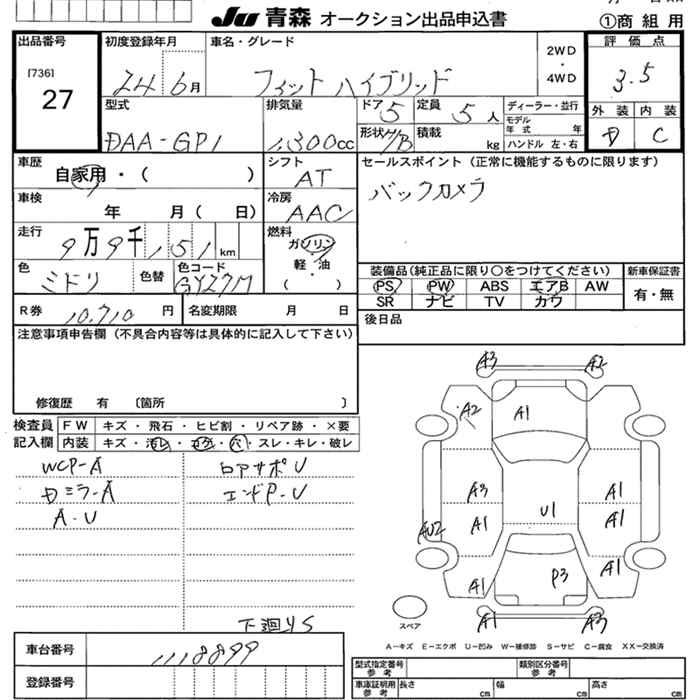 JU 青森 オークション出品申込書
①商 組 用
出品番号
[736]
27
初度登録年月
24年6月
車名・グレード
フィット ハイブリッド
2WD
・
4WD
評 価 点
3.5
外 装 内 装
D C
型式
DAA-GP1
排気量
1,300cc
ドア 5
形状 H/B
定員 5人
積載 kg
ディーラー・並行
モデル年式 年
ハンドル 左・右
車歴
自家用・( )
シフト
AT
セールスポイント(正常に機能するものに限ります)
バックカメラ
車検
年 月( 日)
冷房
AAC
走行
9万9千151km
燃料
ガソリン
・
軽・油
( )
色
ミドリ
色替
色コード
GY27M
装備品(純正品に限り○をつけてください)
PS PW ABS エアB AW
SR ナビ TV カワ
新車保証書
有・無
R券
10,710 円
名変期限 月 日
後日品
注意事項申告欄(不具合内容等は具体的に記入して下さい)
修復歴 有 〔箇所 〕
検査員
記入欄
FW キズ・飛石・ヒビ割・リペア跡・×要
内装 キズ・汚レ・コゲ・穴・スレ・キレ・破レ
WCP-A
Dミラ-A
A-U
ロアサポU
エンドP-U
下廻りS
A3 A2
A2 A1
A3 A1
A1 U1 A1
AU2
A1 P3 A1
A1 A3
スペア
A－キズ E－エクボ U－凹み W－補修跡 S－サビ C－腐食 XX－交換済
車台番号
1118899
登録番号
型式指定番号
参 考
類別区分番号
参 考
車庫証明用
参 考
長さ cm
幅 cm
高さ cm